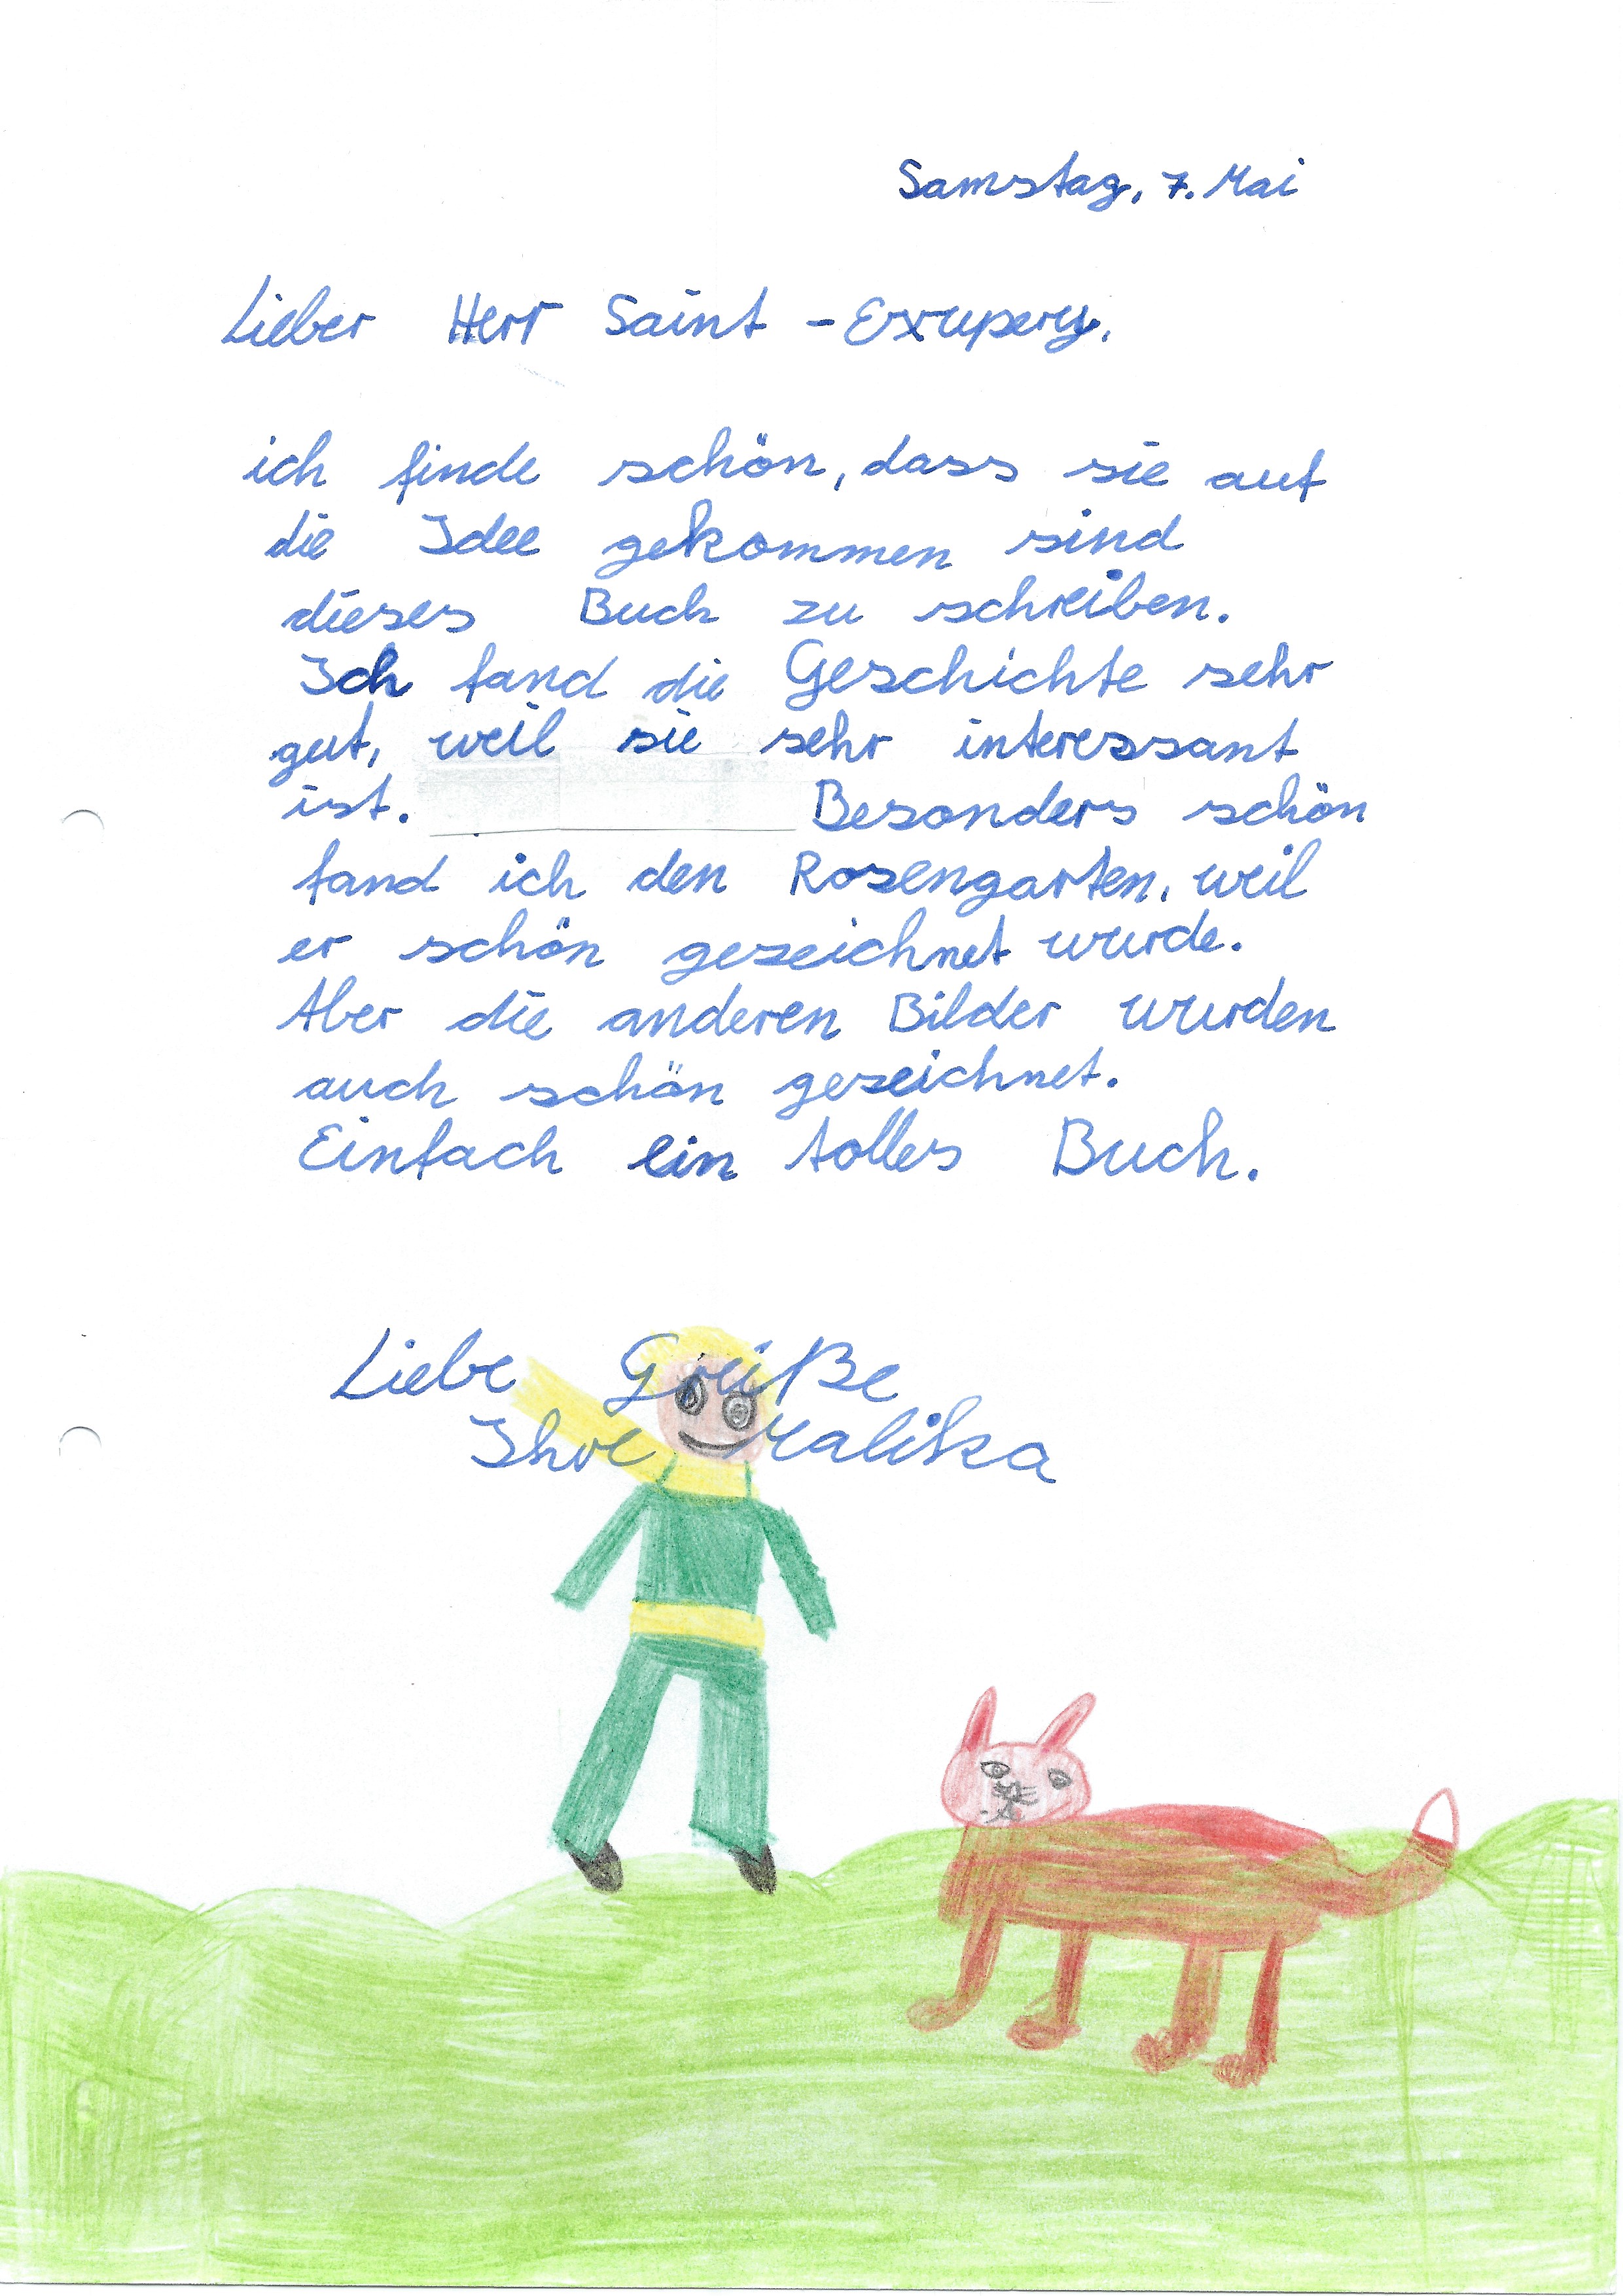 Samstag, 7. Mai
Lieber Herr Saint-Exupery,
ich finde schön, dass sie auf
die Idee gekommen sind
dieses Buch zu schreiben.
Ich fand die Geschichte sehr
gut, weil sie sehr interessant
ist. Besonders schön
fand ich den Rosengarten, weil
er schön gezeichnet wurde.
Aber die anderen Bilder wurden
auch schön gezeichnet.
Einfach ein tolles Buch.
Liebe Grüße
Ihre Malika